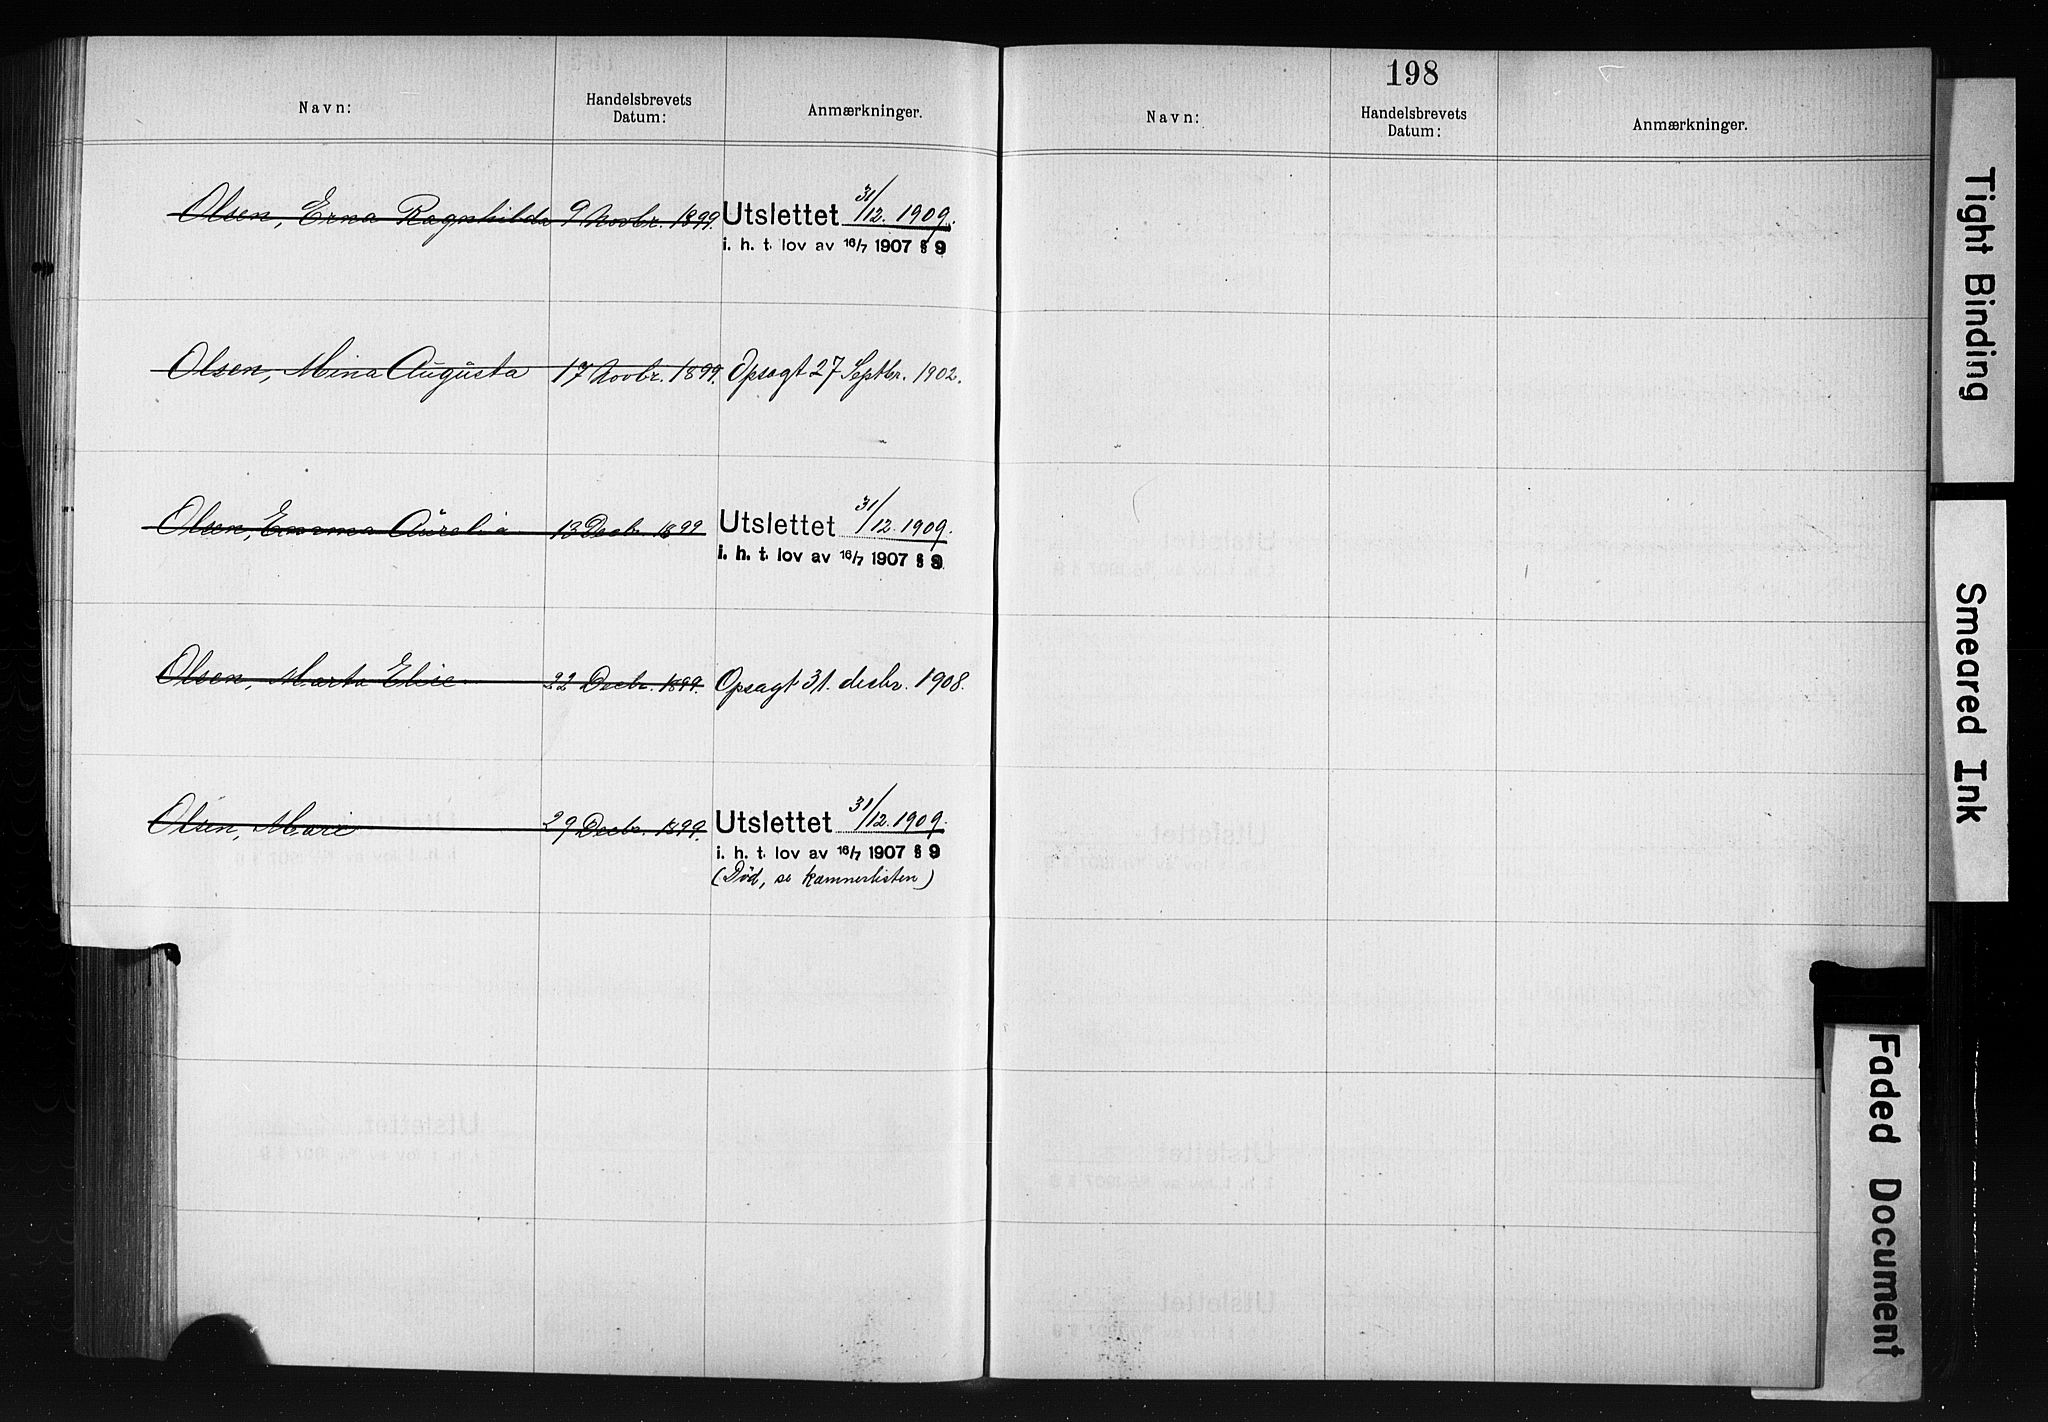 Navn: Handelsbrevets Datum: Anmærkninger.
Olsen, Erna Ragnhilda 9 Novbr. 1899. Utslettet 31/12. 1909.
i. h. t. lov av 16/7 1907 § 9
Olsen, Mina Augusta 17 Novbr. 1899. Opsagt 27 Septbr. 1902.
Olsen, Emma Aurelia 13 Decbr. 1899 Utslettet 31/12. 1909.
i. h. t. lov av 16/7 1907 § 9
Olsen, Marta Elise 22 Decbr. 1899. Opsagt 31. desbr. 1908.
Olsen, Mari 29 Decbr. 1899. Utslettet 31/12. 1909.
i. h. t. lov av 16/7 1907 § 9
(Död, se kæmnerlisten)
198
Navn: Handelsbrevets Datum: Anmærkninger.
Tight Binding
Smeared Ink
Faded Document